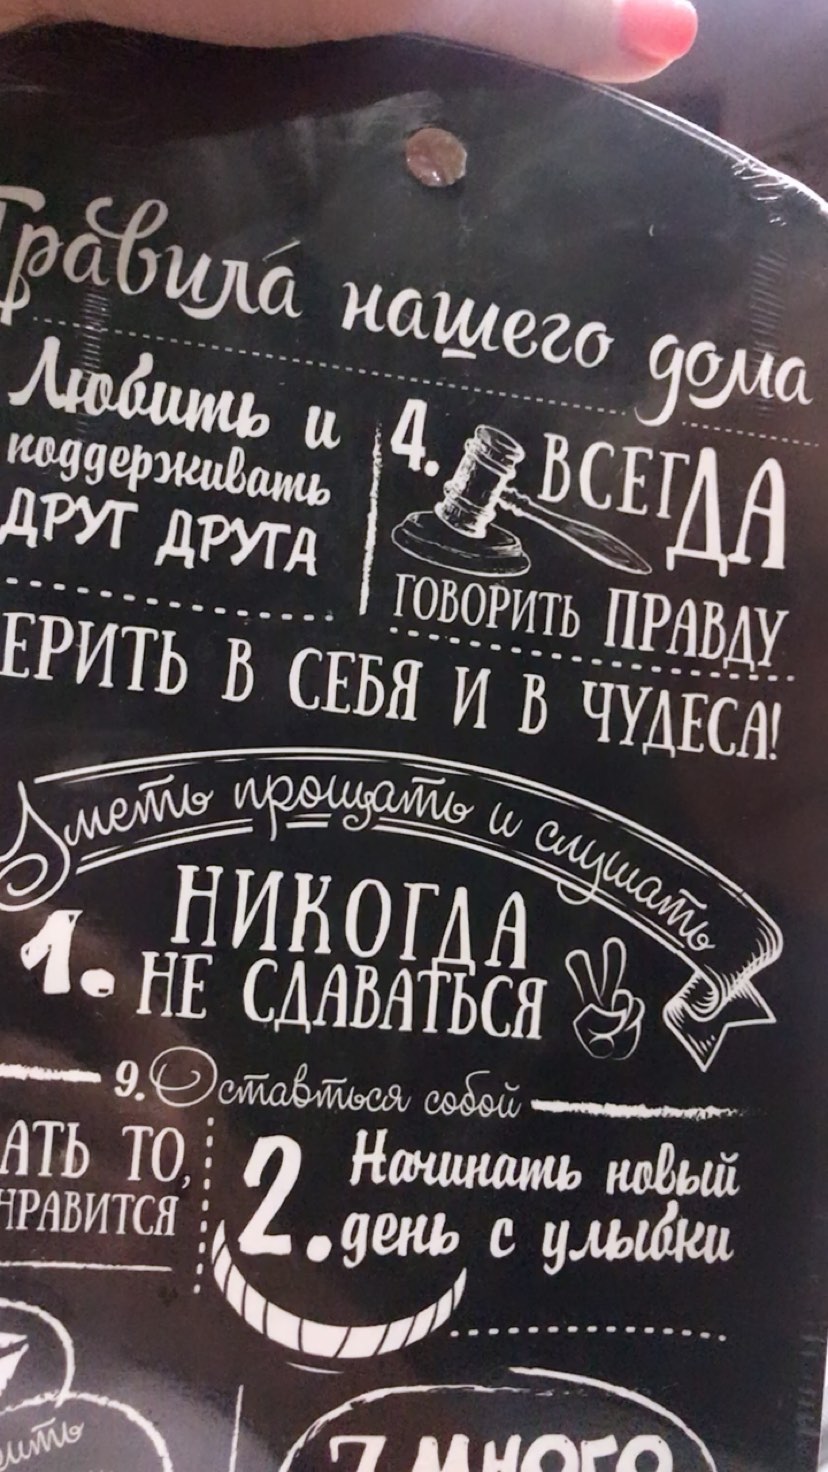 Правила нашего дома
Любить и
поддерживать
ДРУГ ДРУГА
4. ВСЕГДА
ГОВОРИТЬ ПРАВДУ
ЕРИТЬ В СЕБЯ И В ЧУДЕСА!
Уметь прощать и слушать
1. НИКОГДА
НЕ СДАВАТЬСЯ
9. Оставться собой
АТЬ ТО,
НРАВИТСЯ
2. Начинать новый
день с улыбки
7 МНОГО